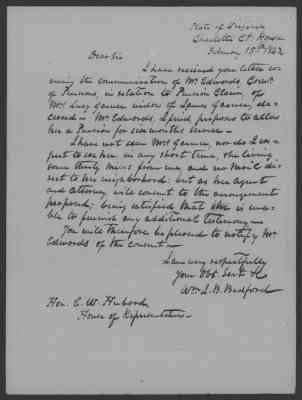 State of Virginia
Charlotte Ct. House
February 15th 1843
Dear Sir
I have received your letter co-
vering the communication of Mr Edwards Comr.
of Pensions, in relation to Pension Claim, of
Mrs Lucy Garner widow of James Garner, de-
ceased — Mr Edwards, I find, proposes to allow
her a Pension for six months service —
I have not seen Mrs Garner, nor do I ex-
pect to see her, in any short time, she living
some thirty miles from me, and no mail di-
rect to her neighborhood: but as her agent
and attorney, will consent to the arrangement
proposed; being satisfied that she is una-
ble to furnish any additional testimony —
You will therefore be pleased to notify Mr
Edwards of the consent —
I am very respectfully
Your Obt. Servt &c
Wm L. B. Bedford
Hon. E. W. Hubard
House of Representatives —